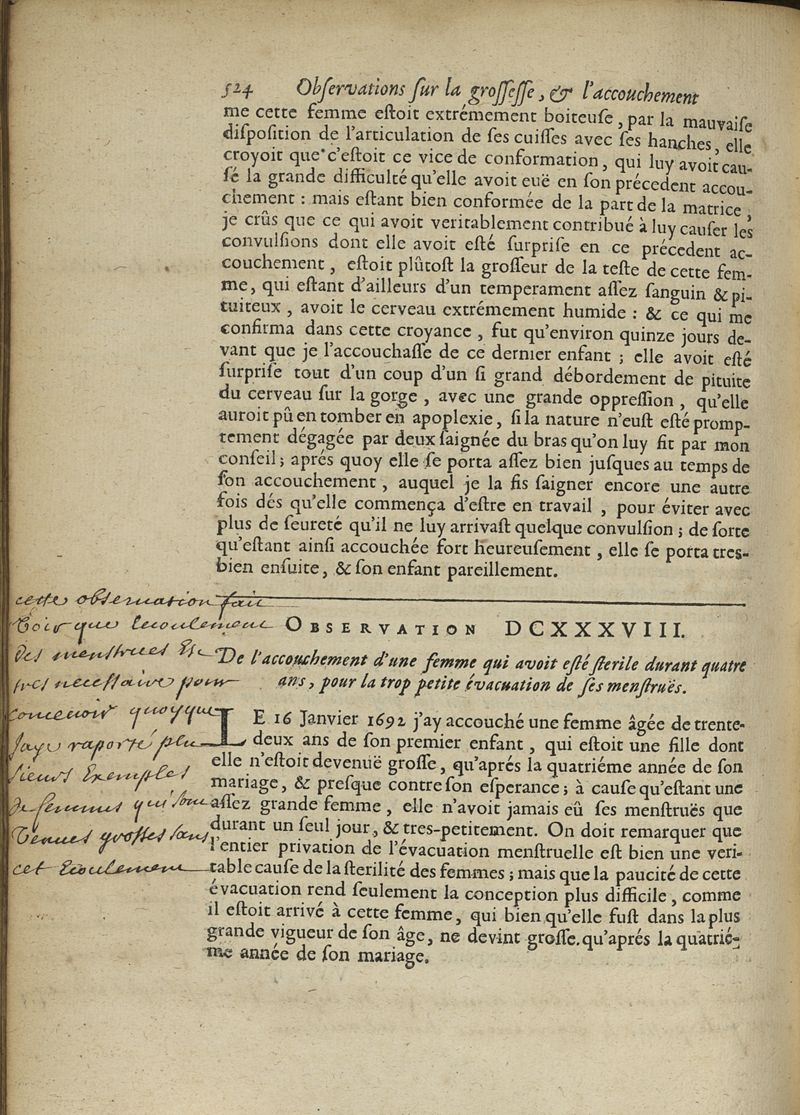 524 Obſervations ſur la groſſeſſe, & l'accouchement
me cette femme eſtoit extrémement boiteuſe, par la mauvaiſe
diſpoſition de l'articulation de ſes cuiſſes avec ſes hanches, elle
croyoit que c'eſtoit ce vice de conformation, qui luy avoit cau-
ſé la grande difficulté qu'elle avoit euë en ſon précedent accou-
chement : mais eſtant bien conformée de la part de la matrice,
je crûs que ce qui avoit veritablement contribué à luy cauſer les
convulſions dont elle avoit eſté ſurpriſe en ce précedent ac-
couchement, eſtoit plûtoſt la groſſeur de la teſte de cette fem-
me, qui eſtant d'ailleurs d'un temperament aſſez ſanguin & pi-
tuiteux, avoit le cerveau extrémement humide : & ce qui me
confirma dans cette croyance, fut qu'environ quinze jours de-
vant que je l'accouchaſſe de ce dernier enfant ; elle avoit eſté
ſurpriſe tout d'un coup d'un ſi grand débordement de pituite
du cerveau ſur la gorge, avec une grande oppreſſion, qu'elle
auroit pû en tomber en apoplexie, ſi la nature n'euſt eſté promp-
tement dégagée par deux ſaignée du bras qu'on luy fit par mon
conſeil ; aprés quoy elle ſe porta aſſez bien juſques au temps de
ſon accouchement, auquel je la fis ſaigner encore une autre
fois dés qu'elle commença d'eſtre en travail, pour éviter avec
plus de ſeureté qu'il ne luy arrivaſt quelque convulſion ; de ſorte
qu'eſtant ainſi accouchée fort heureuſement, elle ſe porta tres-
bien enſuite, & ſon enfant pareillement.
cette obſeruation fait
Voir que lecoulement
des menſtrues Eſt
tres neceſſaire pour
conceuoir quoyque
Jaye raporté plu
ſieurs Exemples
de femmes qui ſont
Venues groſſes ſans
cet Ecoulement
OBSERVATION DCXXXVIII.
De l'accouchement d'une femme qui avoit eſté ſterile durant quatre
ans, pour la trop petite évacuation de ſes menſtruës.
LE 16 Janvier 1692 j'ay accouché une femme âgée de trente-
deux ans de ſon premier enfant, qui eſtoit une fille dont
elle n'eſtoit devenuë groſſe, qu'aprés la quatriéme année de ſon
mariage, & preſque contre ſon eſperance ; à cauſe qu'eſtant une
aſſez grande femme, elle n'avoit jamais eû ſes menſtruës que
durant un ſeul jour, & tres-petitement. On doit remarquer que
l'entier privation de l'évacuation menſtruelle eſt bien une veri-
table cauſe de la ſterilité des femmes ; mais que la paucité de cette
évacuation rend ſeulement la conception plus difficile, comme
il eſtoit arrivé à cette femme, qui bien qu'elle fuſt dans la plus
grande vigueur de ſon âge, ne devint groſſe, qu'aprés la quatrié-
me année de ſon mariage.